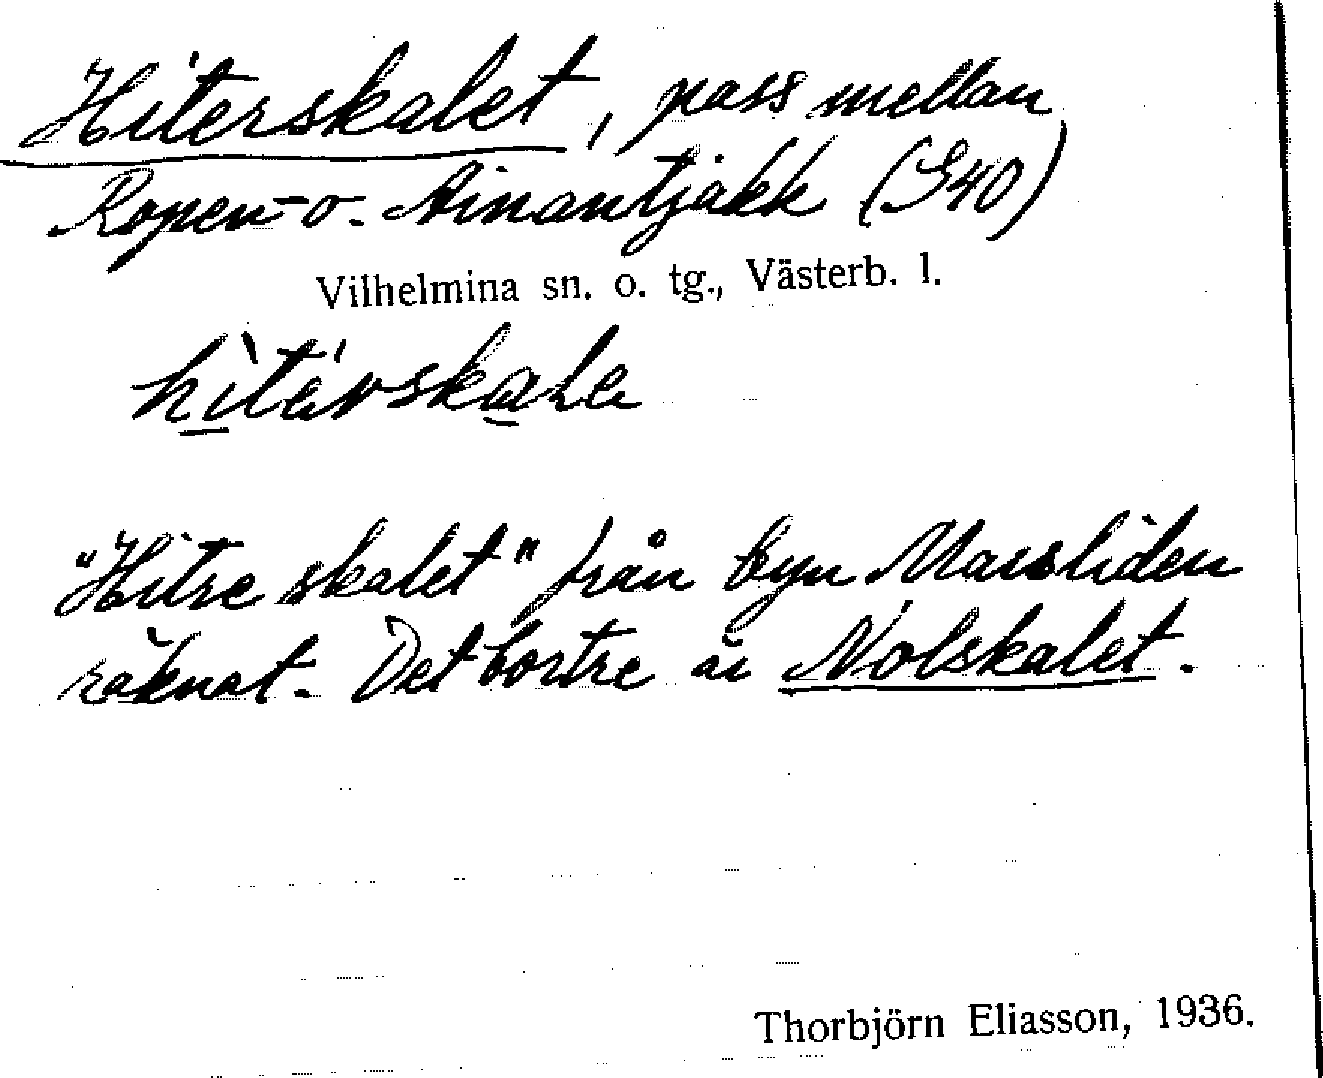 Hiterskalet, pass mellan
Ropen- o. Ainantjakk (S40)
Vilhelmina sn. o. tg., Västerb. l.
hìtérskale
"Hitre skalet" från byn Marsliden
räknat. Det bortre är Nolskalet.
Thorbjörn Eliasson, 1936.